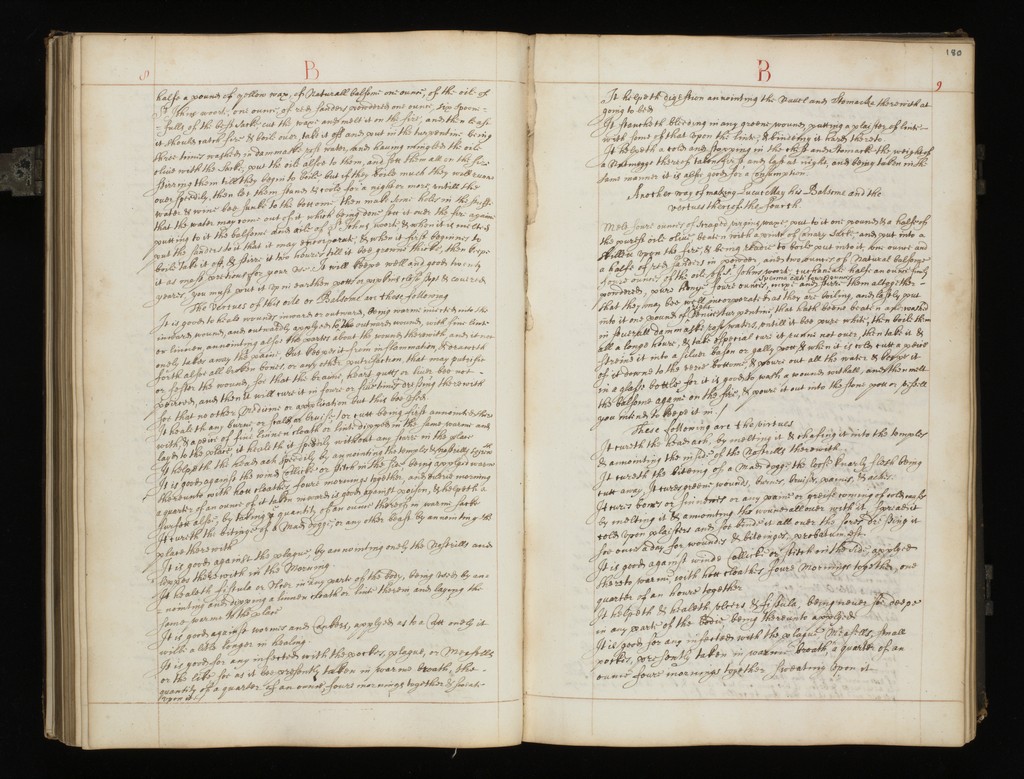 8
B
halfe a pound of yellow wax, of Naturall balsome one ounce, of the oil of
St Johns wort, one ounce, of red sanders powdered one ounce, six spoon-
fulls of the best sack, cut the wax and melt it on the fire, and then least
it should catch fire & boil over take it off and put in the turpentine being
three times washed in dammaske rose water, and having mingled the oile
olive with the sack, put the oile allso to them, and sett them all on the fire
stirring them till they begin to boile but if they boile much they will runn
over speedily, then let them stand & coole for a night or more, untill the
water & wine bee sunke to the bottome, then make some holes in the stuff
that the water may come out of it which being done sett it over the fire again
putting to it the balsome and oile of St Johns wort, & when it is melted
put the sanders to it that it may incorporate, & when it first beginnes to
boile take it off, & stirre it two houres till it bee growne thicke, then keepe
it as most pretious for your use. It will keepe well and good twenty
yeares, you must put it up in earthen potts or pewkins close kept & covered
The Vertues of this oile or Balsome are these following
It is good to heale wounds inward or outward, being warme injected into the
inward wound, and outwardly applyed to the outward wound, with fine lint
or linnon annointing allso the parts about the wound therewith and it not
onely takes away the paine, but keepes it from inflammation, & draweth
forth allso all broken bones, or any other putrifaction, that may putrifie
or fester the wound, so that the braine, heart, gutts or liver bee not
peirced, and then it will cure it in foure or five times dressing therewith
so that no other Medicine or application but this bee used
It healeth any burne or scald or bruise, or cutt being first annointed there
with, & a peice of fine linnen cloath or lint dipped in the same warme and
layd to the place, it healeth it speedily without any scarre in the place
It helpeth the head ach speedily by annointing the temples & Nostrills therewith
It is good against the wind collicke or stitch in the side being applyed warm
thereunto with hott cloathes, foure mornings together, and every morning
a quarter of an ounce of it taken inward is good against poison, & helpeth a
surfett allso, by taking a quantity of an ounce thereof in warme sacke
It cureth the biteings of a Mad dogge or any other beast by annointing the
place therewith
It is good against the plague, by annointing onely the Nostrills and
temples therewith in the Morning
It healeth fistula or Ulcer in any part of the body, being used by ann-
nointing and dipping a linnen cloath or lint therein and laying the
same warme to the place
It is good against wormes and Cankers, applyed as to a Cutt onely it
will a little longer in healing
It is good for any infected with the pockes, plague, or Measells
or the like so as it bee presently taken in warme broath, the
quantity of a quarter of an ounce foure mornings together & sweat
upon it
180
B
9
It helpeth digestion annointing the navel and stomacke therewith at
going to bed
It stancheth bleeding in any greene wound, putting a plaister of lint
with some of that upon the lint, & bindeing it hard thereto
It helpeth a cold and stopping in the chest and stomack the weight of
a Nuttmegge thereof taken first and last at night, and being taken in the
same manner it is allso good for a consumption.
Another way of making Lucatellay his Balsome and the
vertues thereof the fourth
Melt foure ounces of scraped virgins waxe put to it one pound & a halfe of
the purest oile olive, beaten with a pint of Canary sacke, and put into a
skillett upon the fire, & being readie to boile put into it, one ounce and
a halfe of red sanders in powder, and two ounces of Naturall balsome
three ounces of the oile of St Johns wort, cuchaneale half an ounce finely
powdered, pure honey foure ounces, mixe and stirre them alltogether
Sperma ceti foure ounces
that they may bee well incorporated as they are boiling, and lastly put
into it one pound of Venice turpentine, that hath beene beaten and washed
in severall dammaske rose waters, untill it bee pure white, then boile them
all a longe houre, & take especiall care it runne not over, then take it &
straine it into a silver bason or gally pott & when it is cold cutt a peice
of it downe to the verie bottome, & poure out all the water & keepe it
in a glasse bottle, for it is good to wash a wound withall, and then melt
the balsome againe on the fire, & poure it out into the stone pott or vessell
you intend to keepe it in.
These following are the virtues
It cureth the head ach, by melting it & chafing it into the temples
& annointing the inside of the Nostrills therewith
It cureth the biteing of a mad dogge the loose knarly flesh being
cutt away. It cures greene wounds, burnes, bruises, paines, & aches.
It cures bones or sinnewes or any paine or greife coming of cold causes
by melting it & annointing the wound all over with it, spread it
cold upon plaisters and so binde it all over the sore, or using it
so once a day, for wounds & biteinges, probatum est.
It is good against winde collicke or stitch in the side, applyed
thereto warme, with hott cloathes foure Mornings together, one
quarter of an houre together
It helpeth & healeth ulcers & fistula, being never so deepe
in any part of the bodie being thereunto applyed
It is good for any infected with the plague Measells, small
pockes, presently taken in warme broath, a quarter of an
ounce foure mornings together sweating upon it.